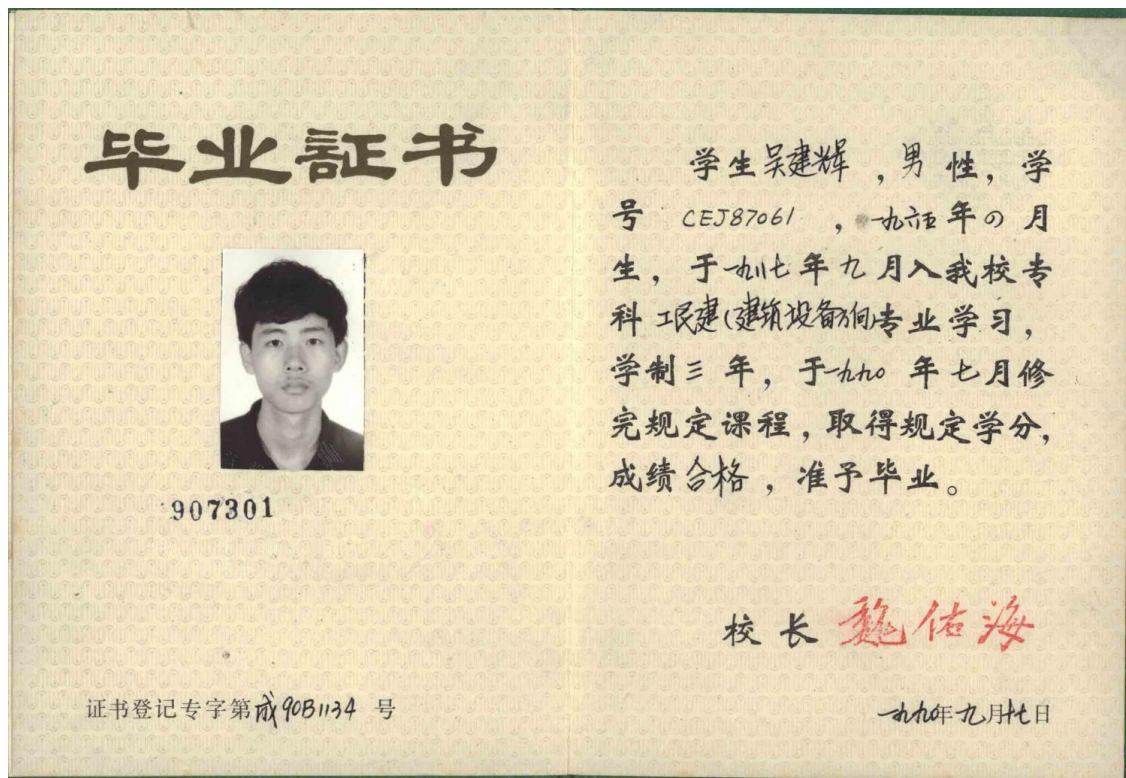 毕业証书
907301
证书登记专字第成90B1134号
学生吴建辉，男性，学
号 CEJ87061，一九六五年四月
生，于一九八七年九月入我校专
科工民建(建筑设备方向)专业学习，
学制三年，于一九九〇年七月修
完规定课程，取得规定学分，
成绩合格，准予毕业。
校长 魏佑海
一九九〇年九月十七日